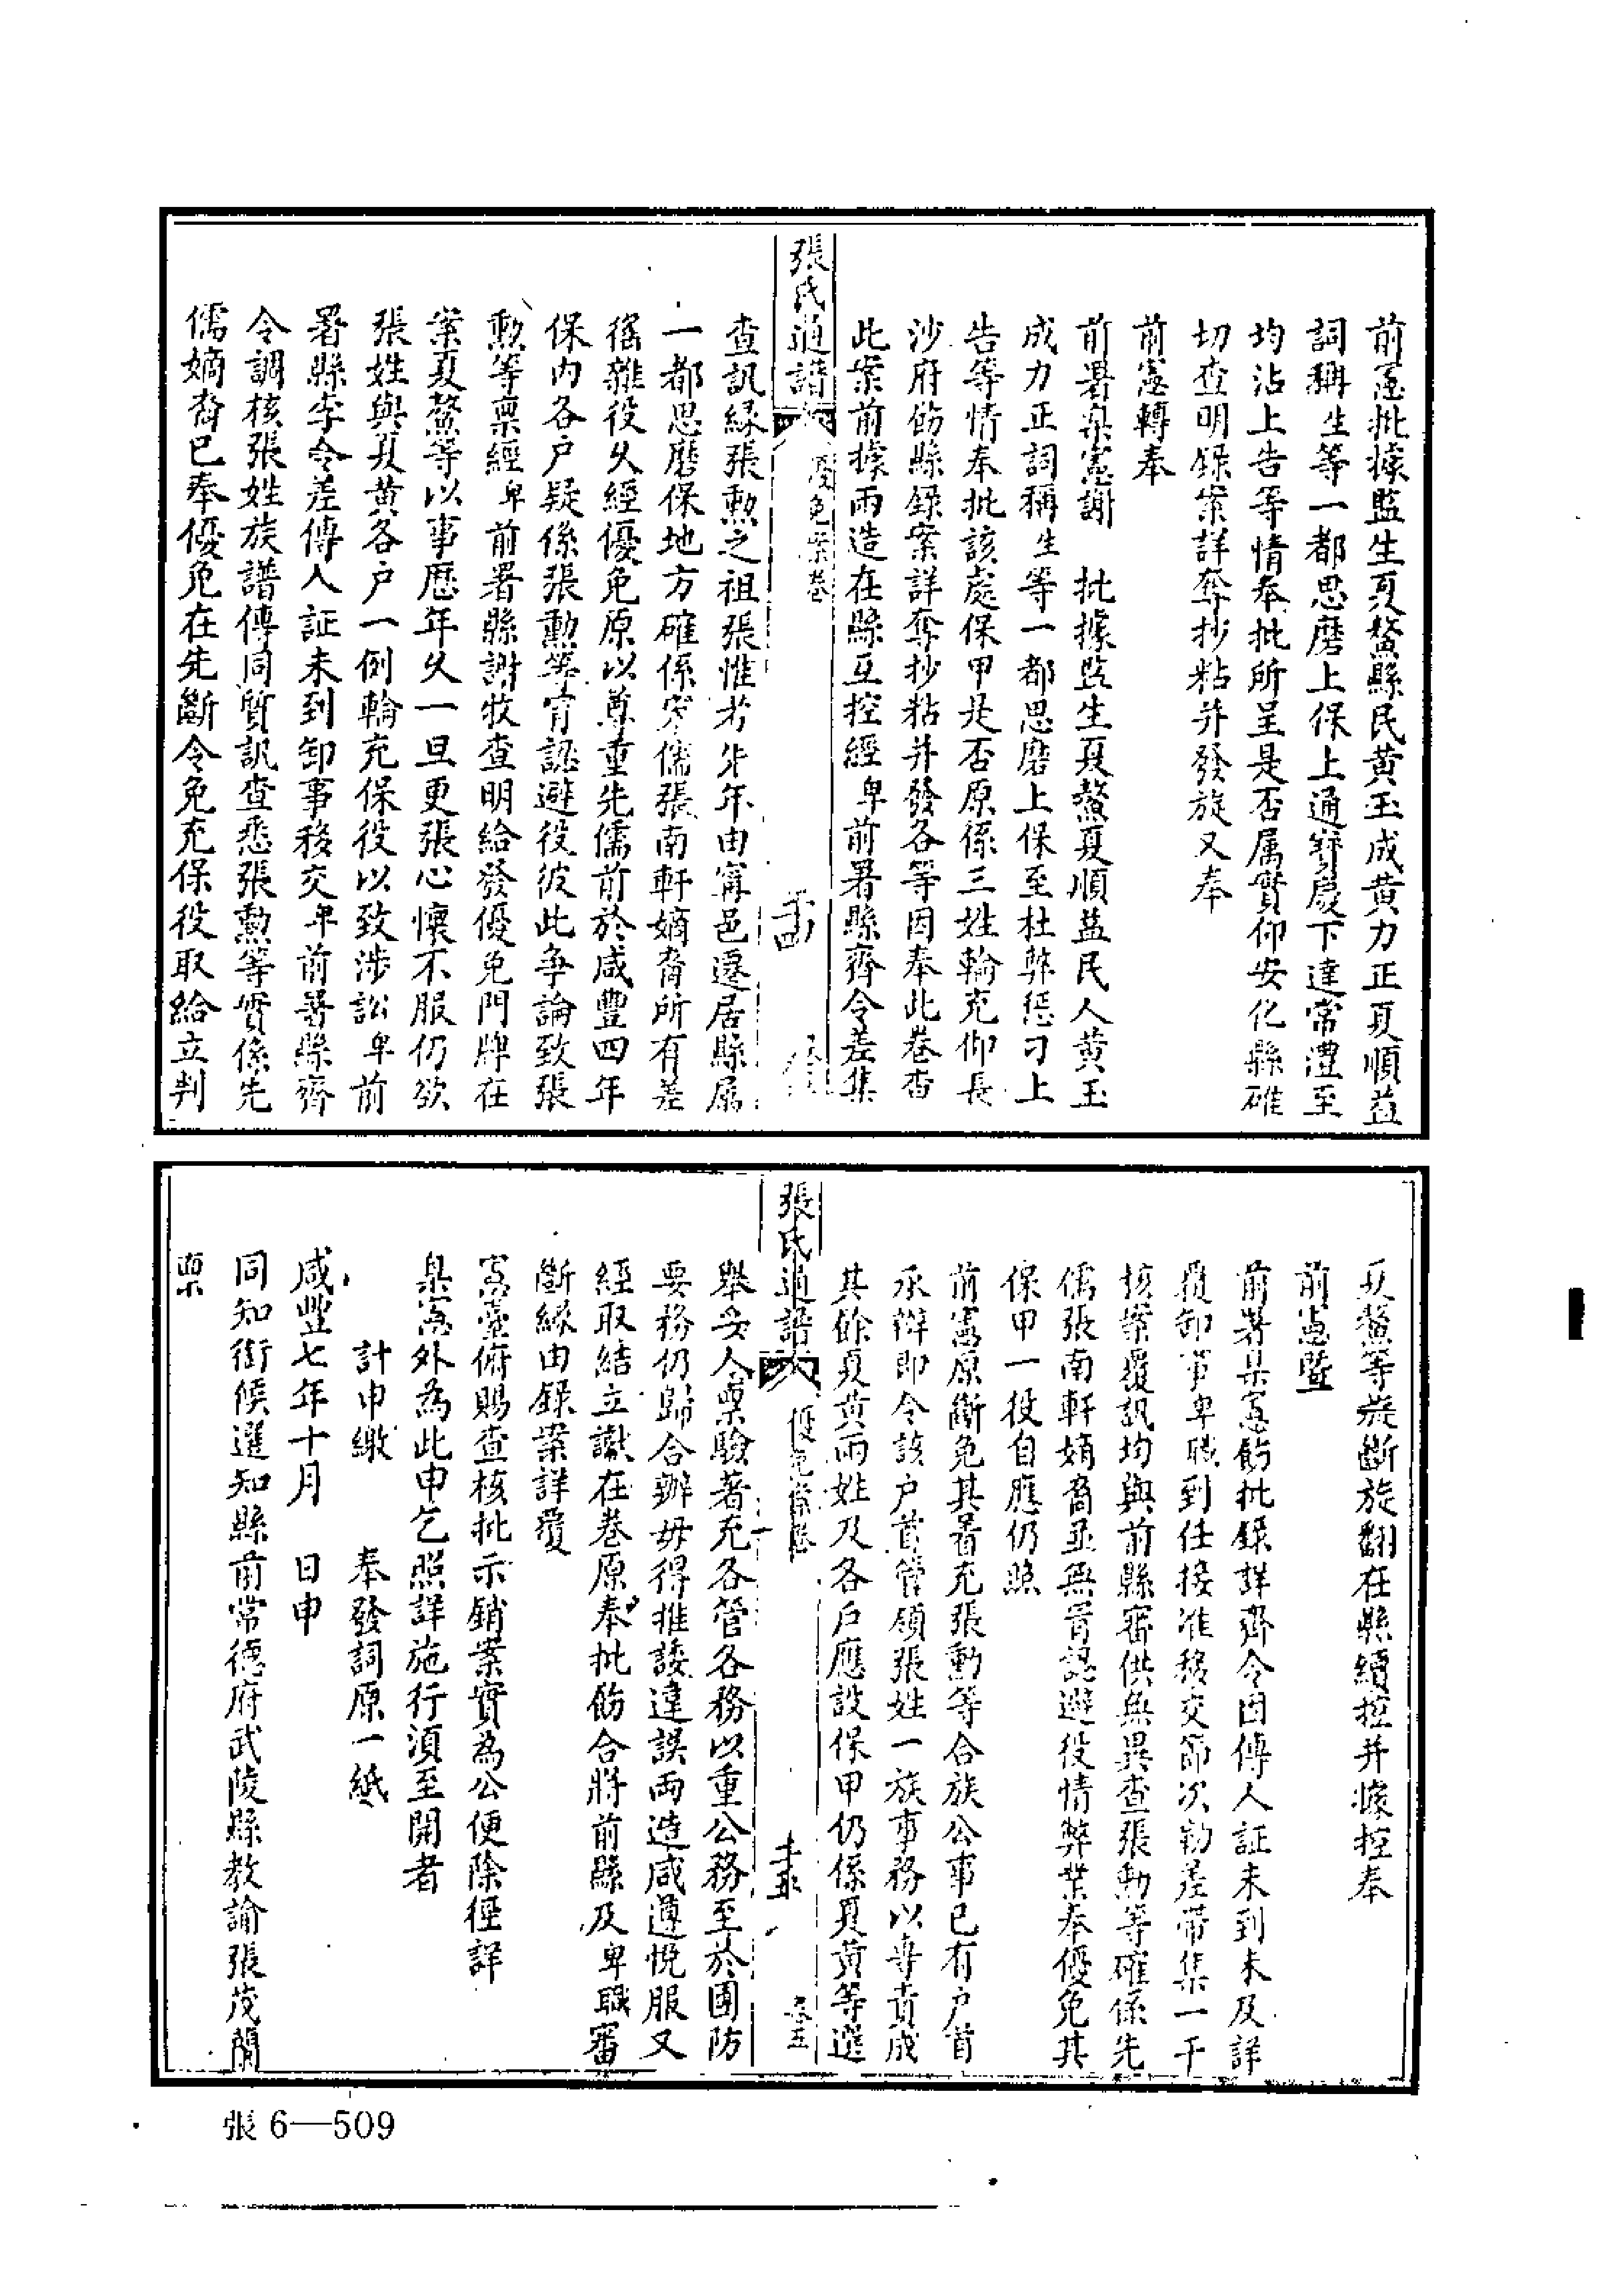 前憲批據監生夏鰲縣民黄玉成黄力正夏順益
詞稱生等一都思磨上保上通寶慶下達常澧至
均沾上告等情奉批所呈是否属實仰安化縣確
切查明録案詳奪抄粘并發旋又奉
前憲轉奉
前署臬憲謝 批據監生夏鰲夏順益民人黄玉
成力正詞稱生等一都思磨上保至杜弊懲刁上
告等情奉批該處保甲是否原係三姓輪充仰長
沙府飭縣録案詳奪抄粘并發各等因奉此卷查
此案前據兩造在縣互控經卑前署縣齊令差集
張氏通譜 優免案卷
查訊緣張勲之祖張惟才先年由甯邑遷居縣屬
一都思磨保地方確係宋儒張南軒嫡裔所有差
徭雜役久經優免原以尊重先儒前於咸豐四年
保内各户疑係張勲等冐認避役彼此争論致張
勲等禀經卑前署縣謝牧查明給發優免門牌在
案夏鰲等以事歷年久一旦更張心懷不服仍欲
張姓與夏黄各户一例輪充保役以致涉訟卑前
署縣李令差傳人証未到卸事移交卑前署縣齊
令調核張姓族譜傳同質訊查悉張勲等實係先
儒嫡裔已奉優免在先斷令免充保役取給立判
夏鰲等旋斷旋翻在縣續控并據控奉
前憲暨
前署臬憲飭批録詳齊令因傳人証未到未及詳
覆卸事卑職到任接准移交節次勒差帶集一干
核案覆訊均與前縣審供無異查張勲等確係先
儒張南軒嫡裔並無冐認避役情弊業奉優免其
保甲一役自應仍照
前憲原斷免其着充張勲等合族公事已有户首
承辦即令該户首管領張姓一族事務以專責成
其餘夏黄兩姓及各户應設保甲仍係夏黄等選
張氏通譜 優免案卷 卷五
舉妥人禀驗著充各管各務以重公務至於團防
要務仍歸合辦毋得推諉違誤兩造咸遵悦服又
經取結立讞在卷原奉批飭合將前縣及卑職審
斷緣由録案詳覆
憲臺俯賜查核批示銷案實為公便除徑詳
臬憲外為此申乞照詳施行須至開者
計申繳 奉發詞原一紙
咸豐七年十月 日申
同知銜候選知縣前常德府武陵縣教諭張茂蘭
禀
張6—509